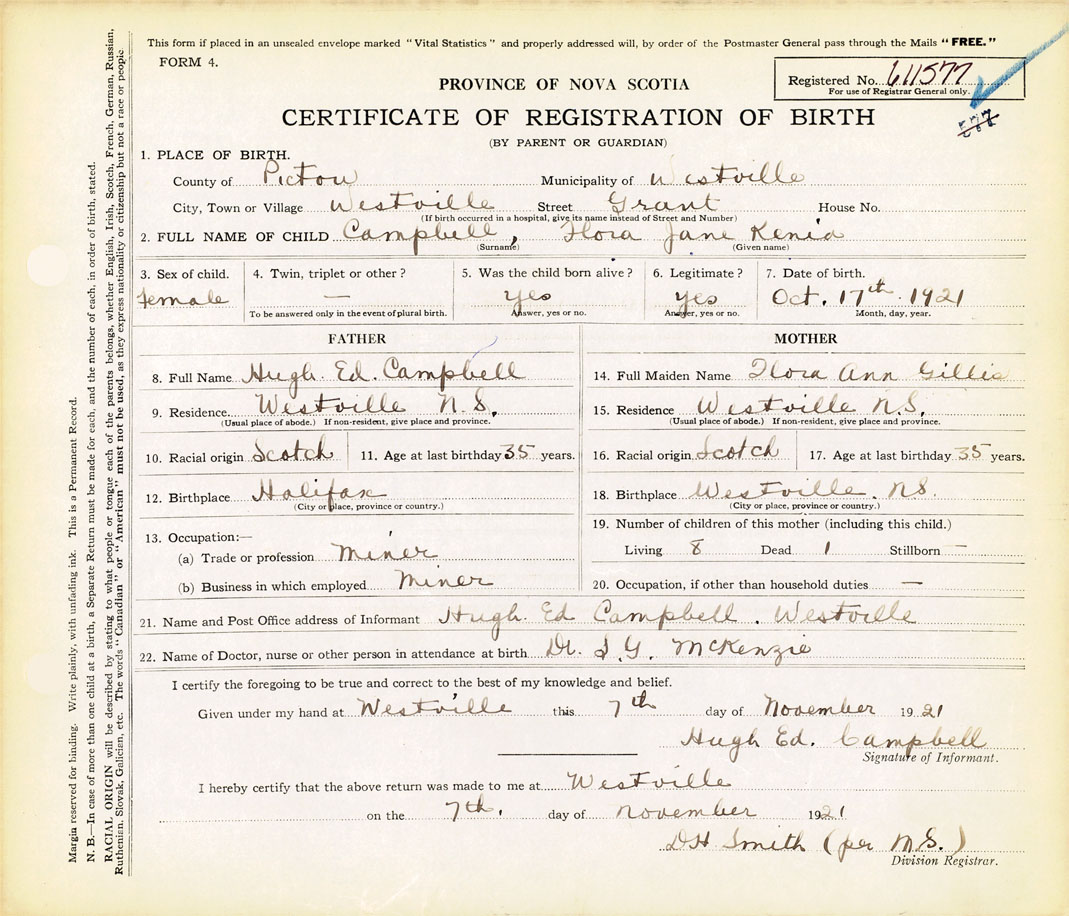 This form if placed in an unsealed envelope marked "Vital Statistics" and properly addressed will, by order of the Postmaster General pass through the Mails "FREE."
FORM 4.
Registered No. 611577
For use of Registrar General only.
577
PROVINCE OF NOVA SCOTIA
CERTIFICATE OF REGISTRATION OF BIRTH
(BY PARENT OR GUARDIAN)
1. PLACE OF BIRTH.
County of Pictou Municipality of Westville
City, Town or Village Westville Street Grant House No.
(If birth occurred in a hospital, give its name instead of Street and Number)
2. FULL NAME OF CHILD Campbell, Flora Jane Kenia
(Surname) (Given name)
3. Sex of child. 4. Twin, triplet or other? 5. Was the child born alive? 6. Legitimate? 7. Date of birth.
female — yes yes Oct. 17th 1921
To be answered only in the event of plural birth. Answer, yes or no. Answer, yes or no. Month, day, year.
FATHER MOTHER
8. Full Name Hugh. Ed. Campbell 14. Full Maiden Name Flora Ann Gillis
9. Residence Westville N.S. 15. Residence Westville N.S.
(Usual place of abode.) If non-resident, give place and province. (Usual place of abode.) If non-resident, give place and province.
10. Racial origin Scotch 11. Age at last birthday 35 years. 16. Racial origin Scotch 17. Age at last birthday 35 years.
12. Birthplace Halifax 18. Birthplace Westville. NS.
(City or place, province or country.) (City or place, province or country.)
13. Occupation:— 19. Number of children of this mother (including this child.)
(a) Trade or profession Miner Living 8 Dead 1 Stillborn —
(b) Business in which employed Miner 20. Occupation, if other than household duties —
21. Name and Post Office address of Informant Hugh. Ed Campbell. Westville
22. Name of Doctor, nurse or other person in attendance at birth Dr. J. G. McKenzie
I certify the foregoing to be true and correct to the best of my knowledge and belief.
Given under my hand at Westville this 7th day of November 1921
Hugh Ed. Campbell
Signature of Informant.
I hereby certify that the above return was made to me at Westville
on the 7th. day of November 1921
DH Smith (per M.S.)
Division Registrar.
Margin reserved for binding. Write plainly, with unfading ink. This is a Permanent Record.
N. B.—In case of more than one child at a birth, a Separate Return must be made for each, and the number of each, in order of birth, stated.
RACIAL ORIGIN will be described by stating to what people or tongue each of the parents belongs, whether English, Irish, Scotch, French, German, Russian,
Ruthenian, Slovak, Galician, etc. The words "Canadian" or "American" must not be used, as they express nationality or citizenship but not a race or people